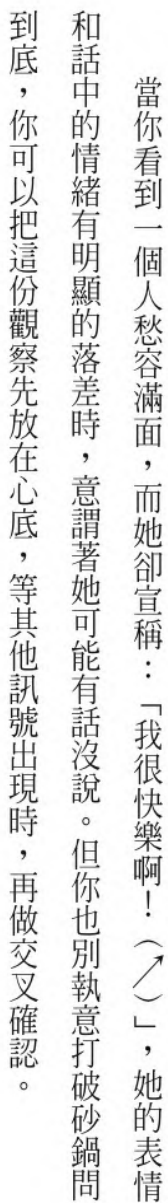 當你看到一個人愁容滿面，而她卻宣稱：「我很快樂啊！（↗）」，她的表情
和話中的情緒有明顯的落差時，意謂著她可能有話沒說。但你也別執意打破砂鍋問
到底，你可以把這份觀察先放在心底，等其他訊號出現時，再做交叉確認。